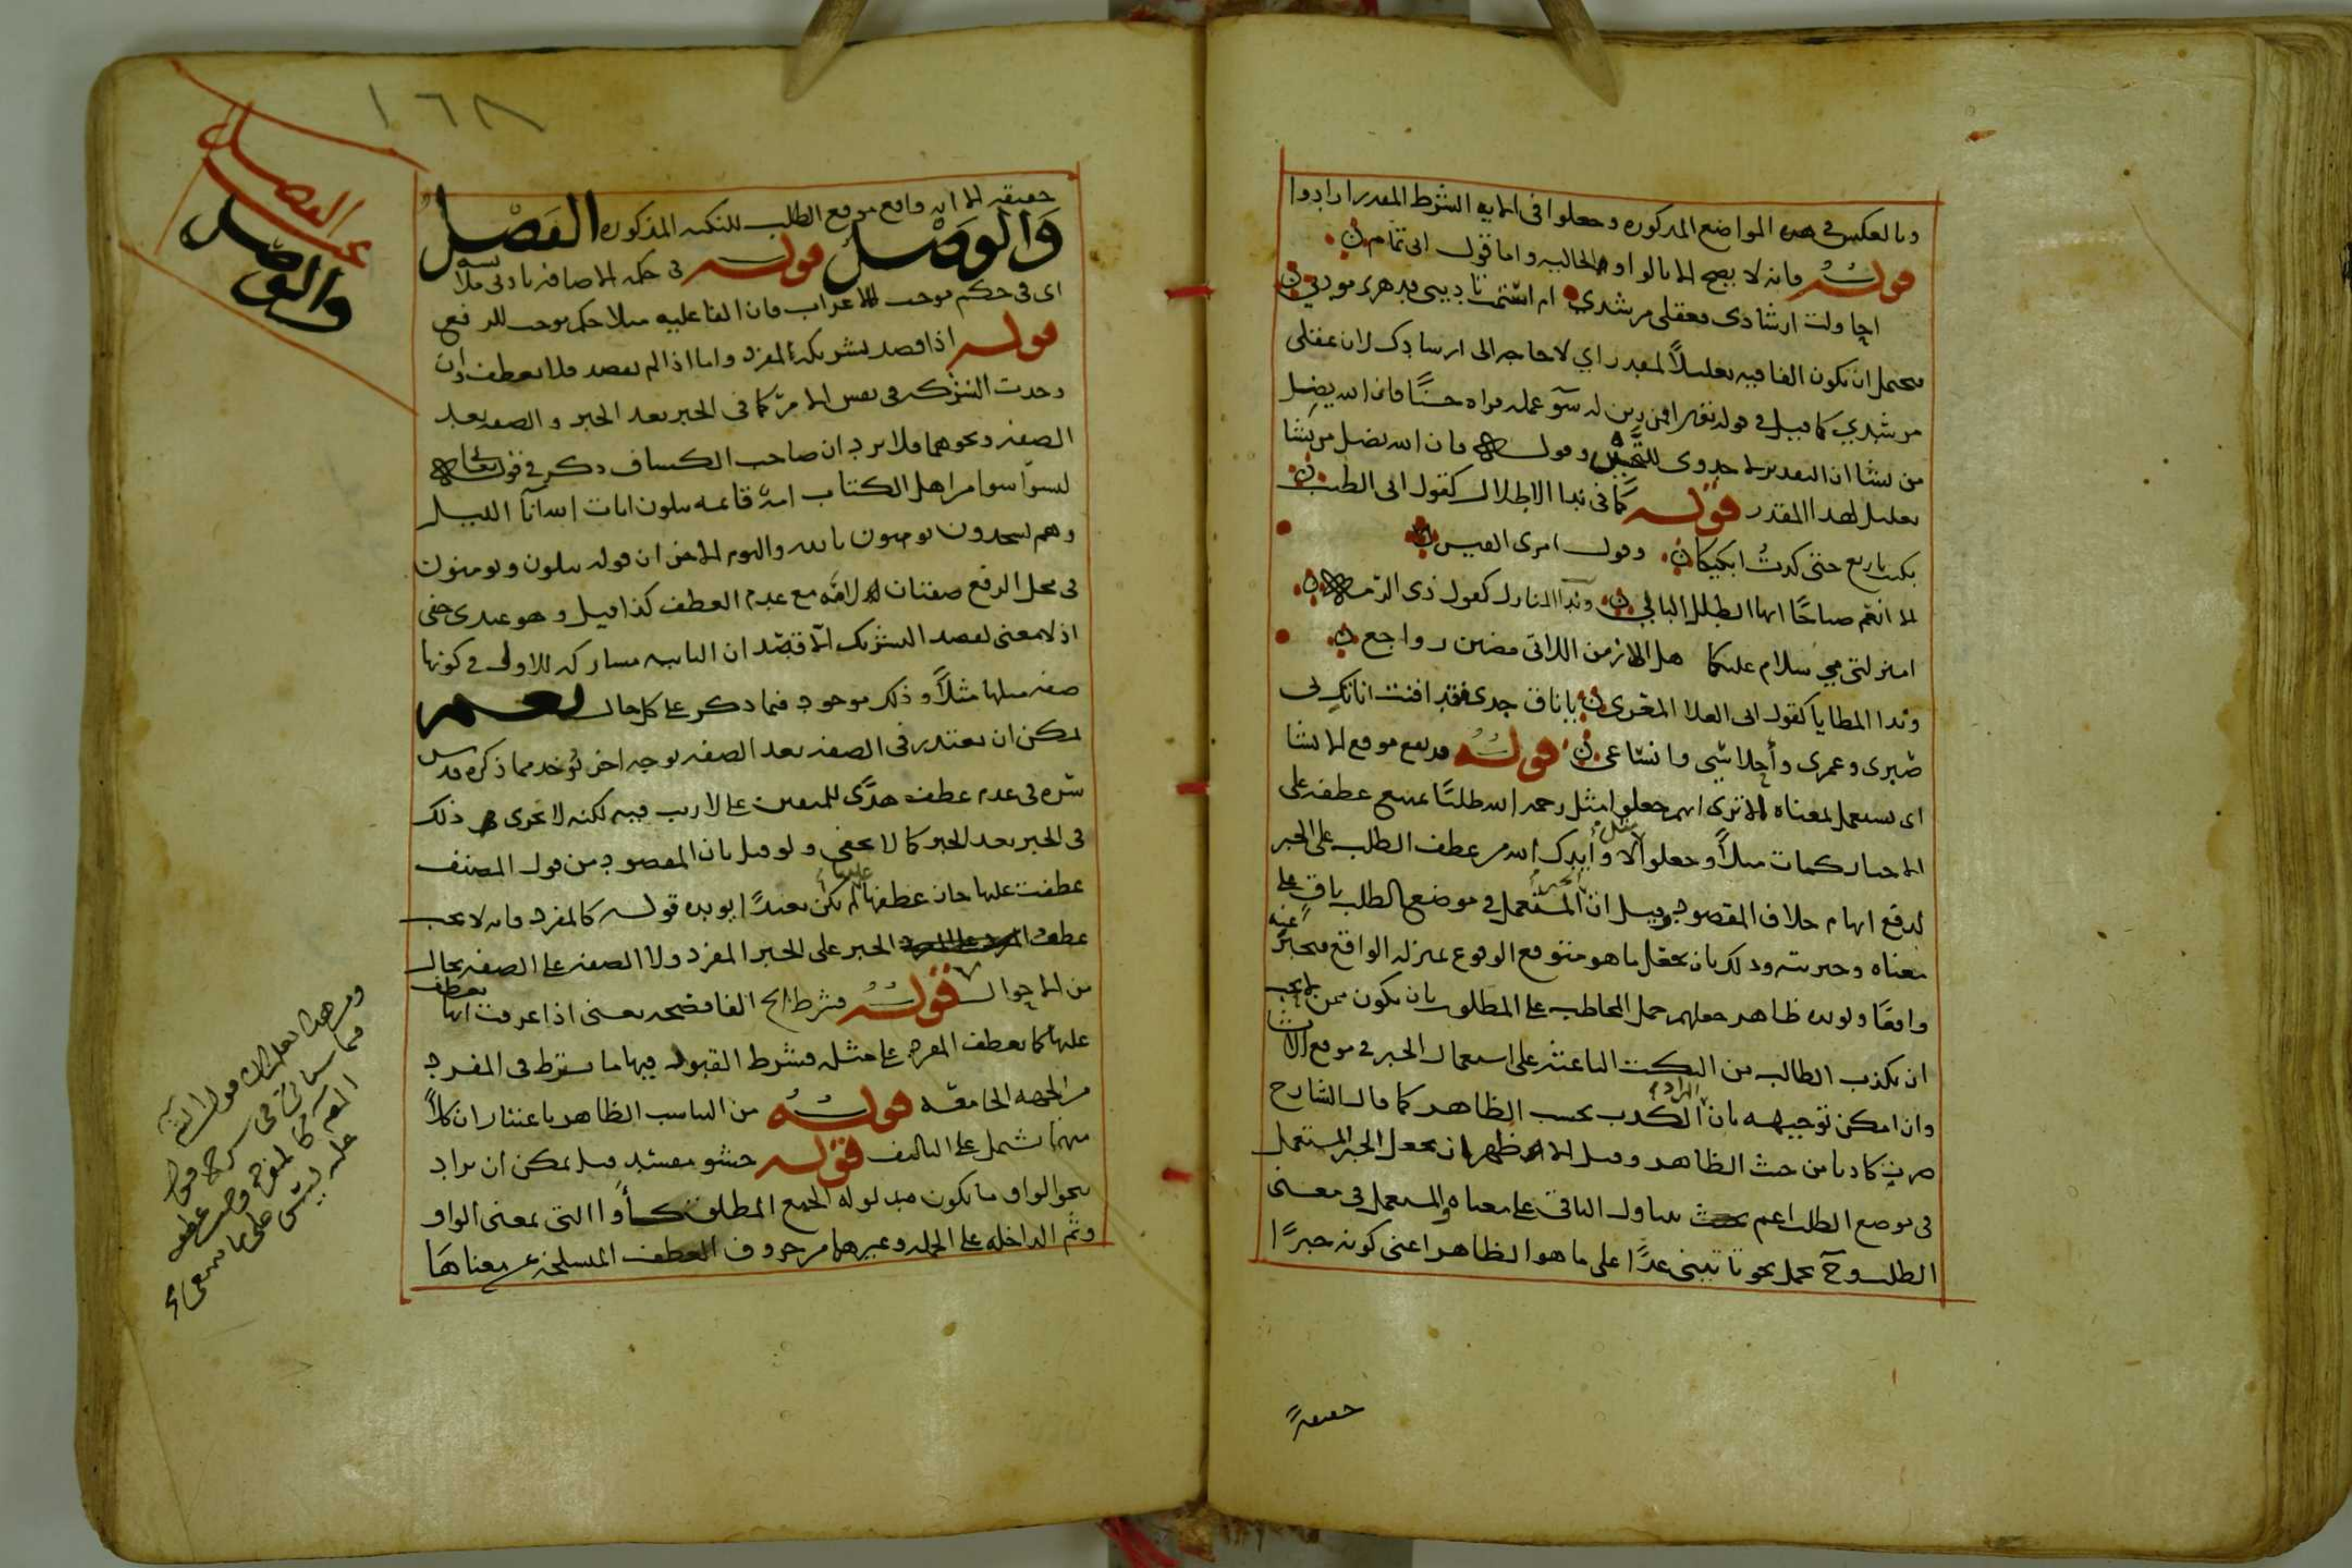 وبالعكس في هذه المواضع المذكورة وجعلوا في الآية الشرط المقدر ارادوا
قوله فانه لا يصح الا بالواو الحالية واما قول ابى تمام
احاولت ارشادى فعقلى مرشدى ام اشتقت تاديبى فدهرى مودبى
فيحتمل ان تكون الفا فيه تعليلاً لمقدر اي لا حاجه الى ارشادك لان عقلى
مرشدي كما قيل في قوله تعالى افمن زين له سوء عمله فراه حسنًا فان الله يضل
من يشا ان التقدير لا جدوى للتحسر وقوله فان الله يضل من يشا
تعليل لهذا المقدر قوله كما فى ندا الاطلال كقول ابى الطيب
بكيت ياربع حتى كدت ابكيكا وقول امرى القيس
الا انعم صباحًا ايها الطلل البالي وندا المنازل كقول ذى الرمه
امنزلتى مي سلام عليكما هل الازمن اللاتى مضين رواجع
وندا المطايا كقول ابى العلا المعرى ياناق جدى فقد افنت اناتك لى
صبرى وعمرى وأحلاسى وانساعى قوله قد يقع موقع الانشا
اى يستعمل لمعناه الا ترى انهم جعلوا مثل رحمه الله طلبًا يمتنع عطفه على
الاخبار كمات مثلاً وجعلوا مثل لا وأيدك الله من عطف الطلب على الخبر
لدفع ايهام خلاف المقصود وقيل ان الخبر المستعمل في موضع الطلب باق على
معناه وخبريته وذلك بان يجعل ما هو متوقع الوقوع بمنزله الواقع فيخبر عنه
واقعًا ويويده ظاهر جعلهم حمل المخاطب على المطلوب بان يكون ممن لا يحب
ان يكذب الطالب من النكت الباعثه على استعمال الخبر في موقع الانشا
وان امكن توجيهه بان المراد الكذب بحسب الظاهر كما قال الشارح
صرت كاذبا من حيث الظاهر وقيل الاظهر ان يجعل الخبر المستعمل
فى موضع الطلب اعم بحيث يتناول الباقى على معناه والمستعمل فى معنى
الطلب وح يحمل نحو تاتينى غدًا على ما هو الظاهر اعنى كونه خبرًا
حقيقةً
١٦٨
بحث الفصل
والوصل
حقيقه الا انه واقع موقع الطلب للنكته المذكوره الفصل
والوصل قوله فى حكمه الاضافه بادنى ملابسه
اى فى حكم موجب الاعراب فان الفاعليه مثلا حكم يوجب الرفع
قوله اذا قصد تشريكه المفرد واما اذا لم يقصد فلا يعطف وان
وجدت الشركه فى نفس الامر كما فى الخبر بعد الخبر والصفه بعد
الصفه ونحوهما فلا يرد ان صاحب الكشاف ذكر في قوله تعالى
ليسوا سوا من اهل الكتاب امة قائمه يتلون ايات الله آنا الليل
وهم يسجدون يومنون بالله واليوم الاخر ان قوله يتلون ويومنون
فى محل الرفع صفتان لامه مع عدم العطف كذا قيل وهو عندى خفى
اذ لا معنى لقصد التشريك الا قصد ان الثانيه مشاركه للاولى في كونها
صفه مثلها مثلاً وذلك موجود فيما ذكر على كل حال نعم
يمكن ان يعتذر فى الصفه بعد الصفه بوجه اخر يوخذ مما ذكره قدس
سره فى عدم عطف هدًى للمتقين على لا ريب فيه لكنه لا يجرى ذلك
فى الخبر بعد الخبر كما لا يخفى ولو قيل بان المقصود من قول المصنف
عطفت عليها جاز عطفها عليها لم يكن بعيدًا يويده قوله كالمفرد فانه لا يجب
عطف الخبر على الخبر المفرد ولا الصفه على الصفه بحال
من الاحوال قوله فشرط الخ الفا فصيحه يعنى اذا عرفت انها تعطف
عليها كما يعطف المفرد على مثله فشرط القبول فيها ما يشترط فى المفرد
من الجهه الجامعه قوله من التناسب الظاهر باعتبار ان كلاً
منهما يشتمل على التاليف قوله حشو مفسد قيل يمكن ان يراد
بنحو الواو ما يكون مدلوله الجمع المطلق كأو التى بمعنى الواو
وثم الداخله على الجمله وغيرهما من حروف العطف المنسلخه عن معناها